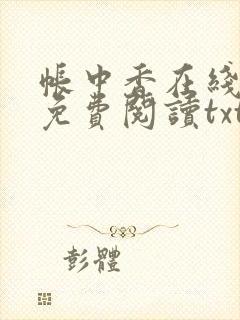 帳中香在綫
免費閱讀txt
彭體